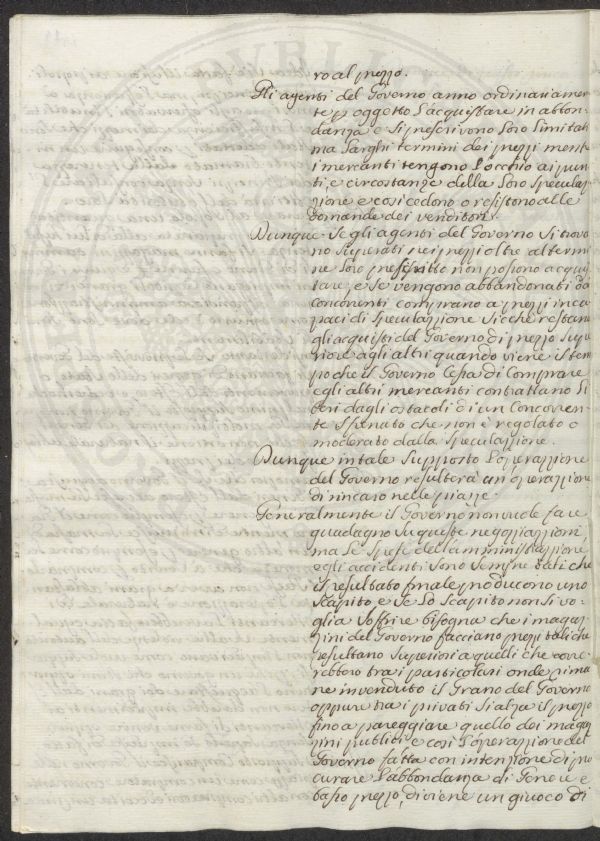 ro al prezzo.
Gli agenti del Governo anno ordinariamen
te p oggetto l'acquistare in abbon-
danza e si prescrivono loro limitati
ma larghi termini dei prezzi mentre
i mercanti tengono l'occhio ai punti
ti, e circostanze della loro specula
zione e così cedono o resistono alle
domande dei venditori.
Dunque se gli agenti del Governo si trova
no superati nei prezzi oltre al termi
ne loro prescritto non possono acqui
tare, e se vengono abbandonati da
concorrenti comprano a prezzi inca
paci di speculazione sicche restano
gli acquisti del Governo di prezzo supe
riore agli altri quando viene il tem
po che il Governo cessa di comprare
e gli altri mercanti contrattano li
beri dagli ostacoli di un concorren
te sfrenato che non è regolato o
moderato dalla speculazione.
Dunque in tale supposto l'operazione
del Governo resulterà un operazione
di rincaro nelle piazze.
Generalmente il Governo non vuole fare
guadagno su queste negoziazioni
ma le spese dell'amministrazione
e gli accidenti sono sempre tali che
il resultato finale producono uno
scapito, e se lo scapito non si vo
glia soffrire bisogna che i magaz
zini del Governo facciano prezzi tali che
resultano superiori a quelli che
rebbero tra i particolari onde rima
ne invenduto il grano del Governo
oppure tra i privati si alza il prezzo
fino a pareggiare quello dei magaz
zini publici e così l'operazione del
Governo fatta con intenzione di pro
curare l'abbondanza di genere e
basso prezzo, diviene un giuoco di